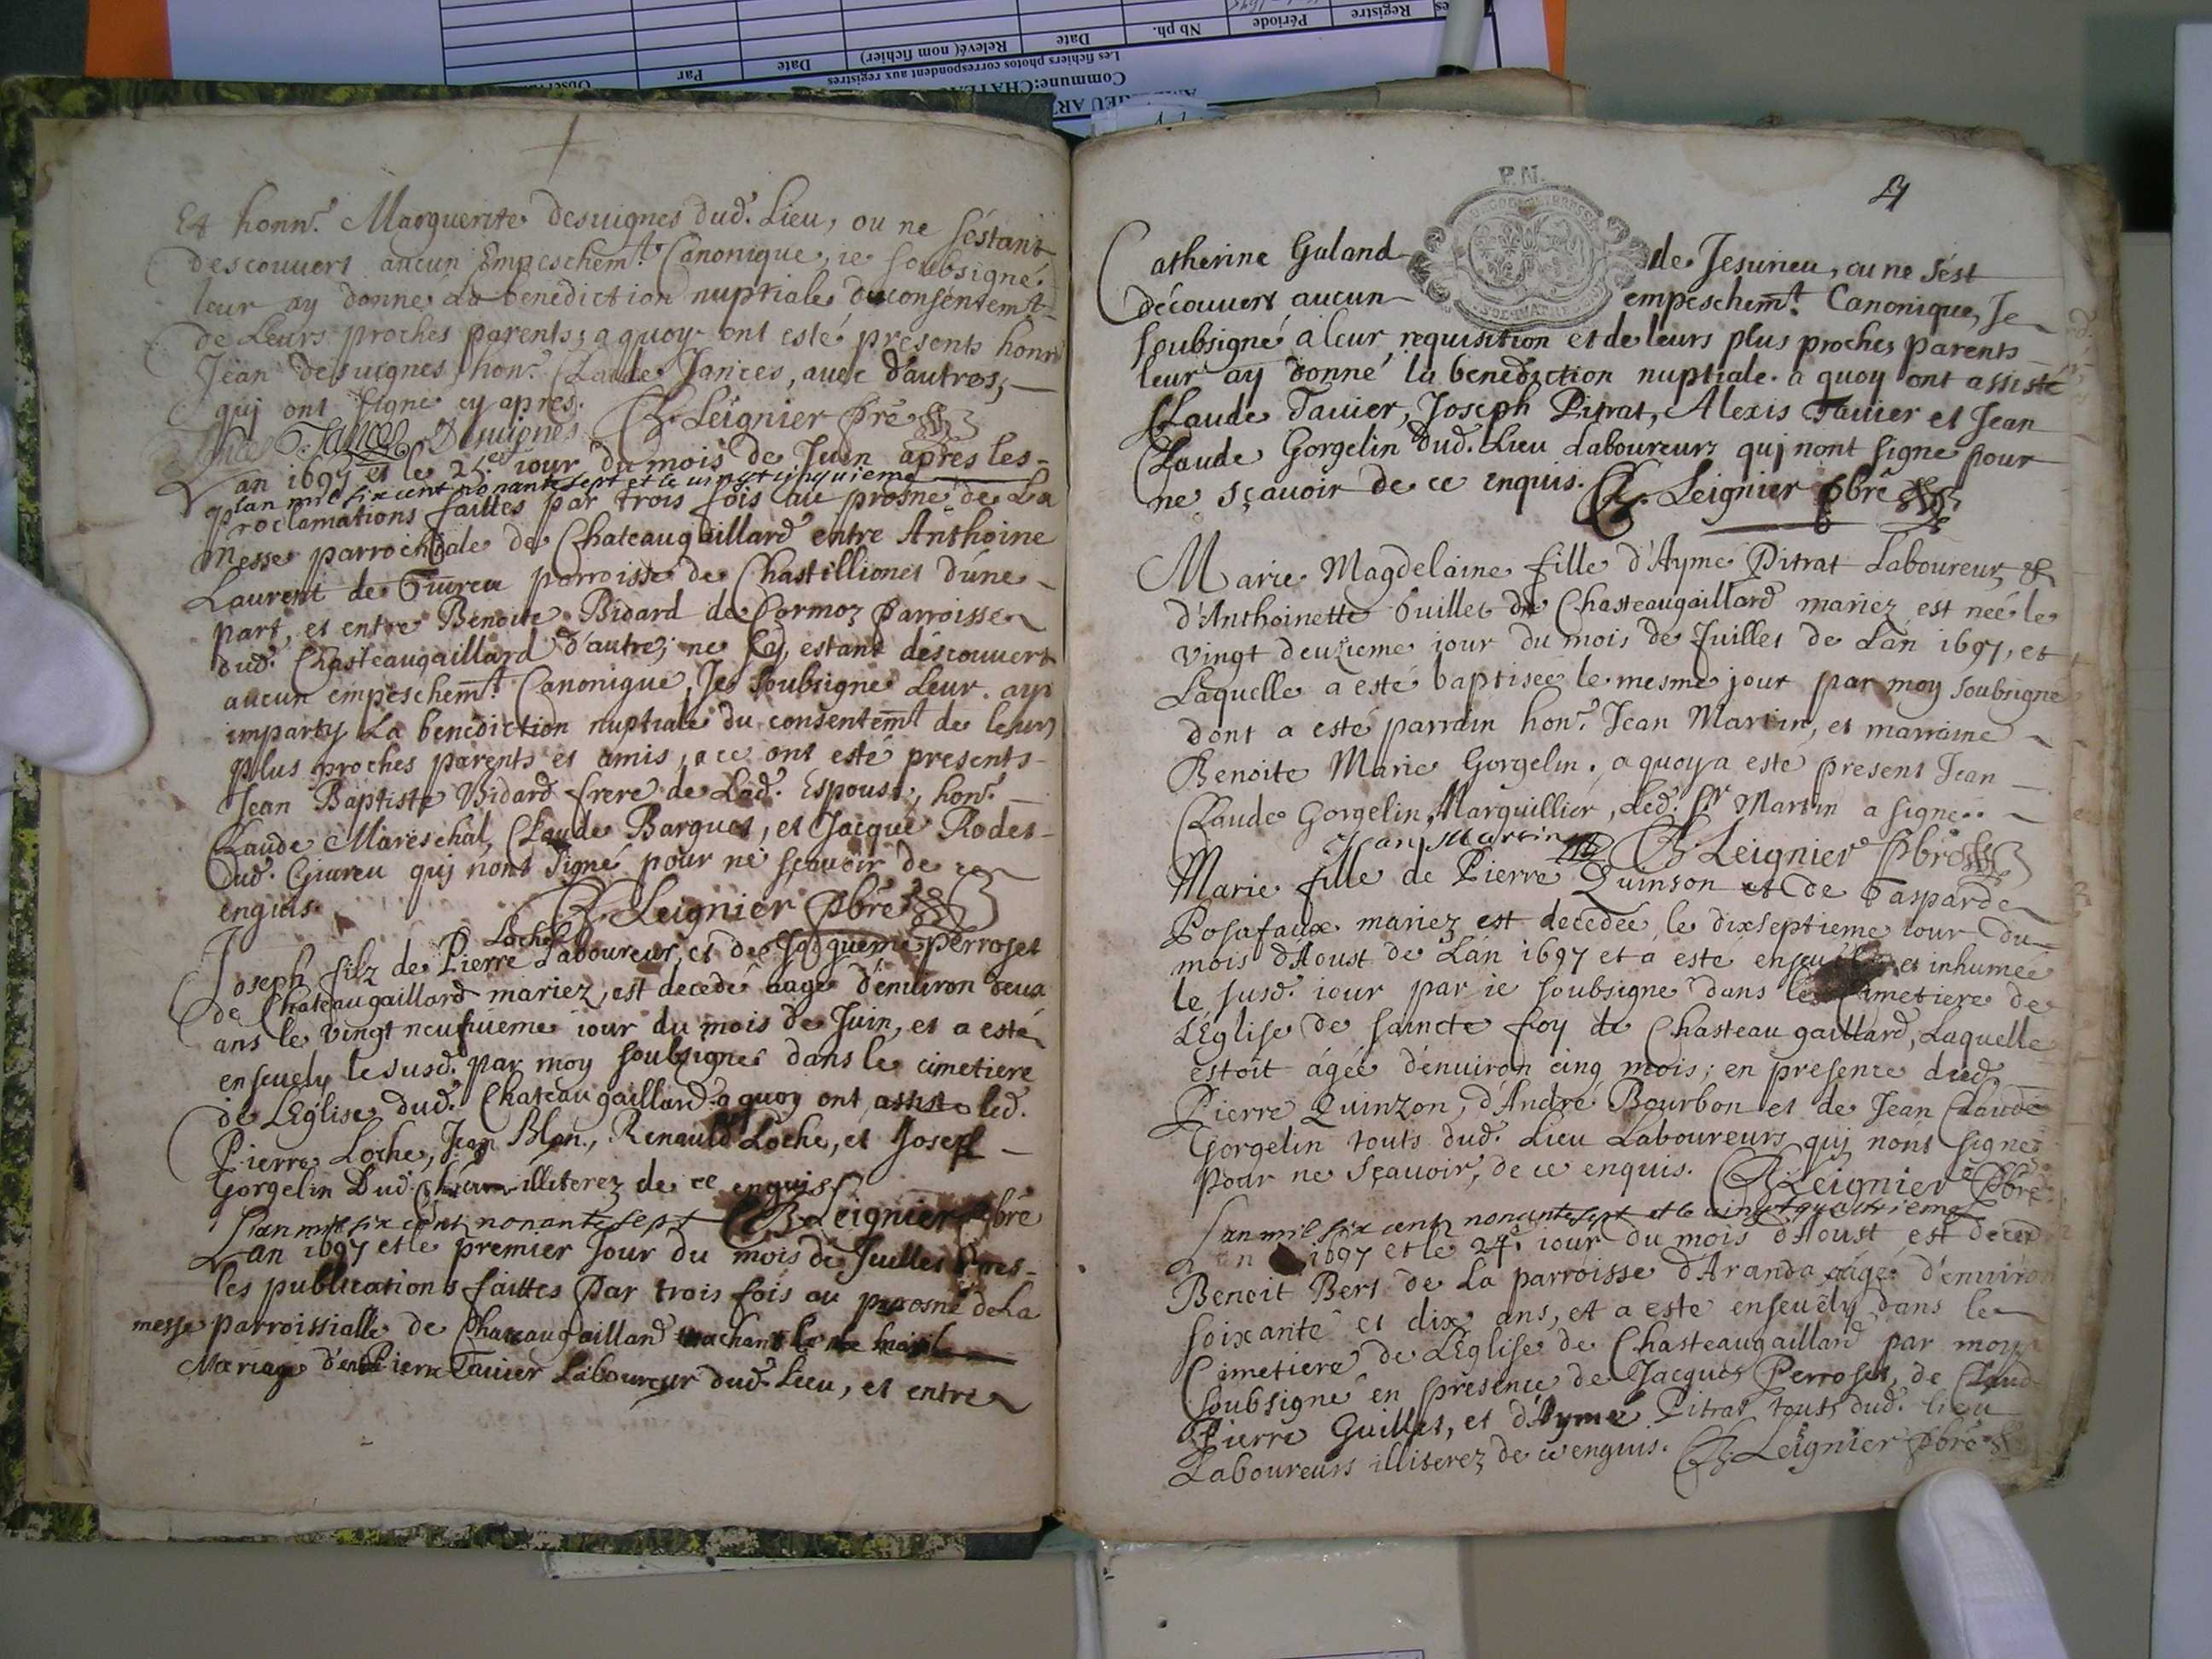 Et honn.e Marguerite desuignes dud. Lieu, ou ne s'éstant
descouuert aucun Empeschem.t Canonique, ie soubsigné
leur ay donné la benediction nuptiale, du consentem.t
de Leurs proches parents; a quoy ont esté presents honn.
Jean desuignes, hon.e Claude Jances, auec d'autres,
qui ont signe cy apres.
Desuignes Ch. Leignier Pbre
Lan 1697 et le 25.e iour du mois de Juin apres les
lan mil six cent nonante sept et le uingt cinquieme
proclamations faittes par trois fois au prosne de La
Messe parrochiale de Chateaugaillard entre Anthoine
Laurent de Giureu parroisse de Chastillionet d'une
part, et entre Benoite Bidard de Cormoz Parroisse
dud. Chasteaugaillard d'autre; ne s'y estant descouuert
aucun empeschem.t Canonique, Je soubsigne Leur ay
imparty La benediction nuptiale du consentem.t de leurs
plus proches parents et amis, a ce ont esté presents
Jean Baptiste Bidard frere de Lad. Espouse, hon.e
Claude Mareschal, Claude Barguet, et Jacque Rodet
dud. Giureu quj nont Signé pour ne sçauoir de ce
enquis. Ch. Leignier Pbre
Loche
Joseph filz de Pierre Laboureur, et de Jacqueme Perroset
de Chateaugaillard mariez, est decedé aagé d'enuiron deux
ans le vingt neufuieme iour du mois de Juin, et a esté
enseuely le susd. par moy soubsigné dans le cimetiere
de LEglise dud. Chateaugaillard a quoy ont assisté led.
Pierre Loche, Jean Blan, Renauld Loche, et Joseph
Gorgelin Dud. illiterez de ce enquis
Lan mil six cent nonante sept Ch. Leignier Pbre
Lan 1697 et le premier Jour du mois de Juillet Apres
les publications faittes Par trois fois au prosne de La
messe parroissialle de Chateaugaillard
Mariage d'entre Pierre Tauier Laboureur dud. Lieu, et entre
P.N.
4
Catherine Galand de Jesurieu, ou ne s'ést
découuert aucun empeschem.t Canonique, Je
soubsigné a leur requisition et de leurs plus proches parents
leur ay donné la benediction nuptiale. a quoy ont assisté
Claude Tauier, Joseph Pitrat, Alexis Tauier et Jean
Claude Gorgelin dud. Lieu Laboureurs quj nont signe pour
ne sçauoir de ce enquis. Ch. Leignier Pbre
Marie Magdelaine fille d'Ayme Pitrat Laboureur, &
d'Anthoinette Guillet de Chasteaugaillard mariez est neé le
vingt deuzieme iour du mois de Juillet de Lan 1697, et
Laquelle a esté baptiseé le mesme jour par moy soubsigne
dont a esté parrain hon.e Jean Martin, et marraine
Benoite Marie Gorgelin. a quoy a esté present Jean
Claude Gorgelin Marguillier, Led. S.r Martin a signe.
Jean Martin Ch. Leignier Pbre
Marie fille de Pierre Quinson et de Gasparde
Posafaux mariez est decedeé le dixseptieme iour du
mois d'Aoust de Lan 1697 et a este et inhumeé
le susd. iour par ie soubsigne dans le Cimetiere de
LEglise de saincte foy de Chasteaugaillard, Laquelle
estoit ágeé d'enuiron cinq mois; en presence dud.
Pierre Quinzon, d'André Bourbon et de Jean Claude
Gorgelin touts dud. Lieu Laboureurs quj nont signe
pour ne sçauoir, de ce enquis. Ch. Leignier Pbre
Lan mil six cent nonante sept et le uingt quatrieme
Lan 1697 et le 24.e iour du mois d'Aoust est decedé
Benoit Bert de La parroisse d'Aranda aágé d'enuiron
soixante et dix ans, et a este enseuely dans le
Cimetiere de LEglise de Chasteaugaillard par moy
soubsigné en presence de Jacques Perroset, de Claude
Pierre Guillet, et d'Aymé Pitrat touts dud. lieu
Laboureurs illiterez de ce enquis. Ch. Leignier Pbre
Commune:CHATEAU
Les fichiers photos correspondent aux registres
Registre Période Nb ph. Date Relevé( nom fichier) Date Par